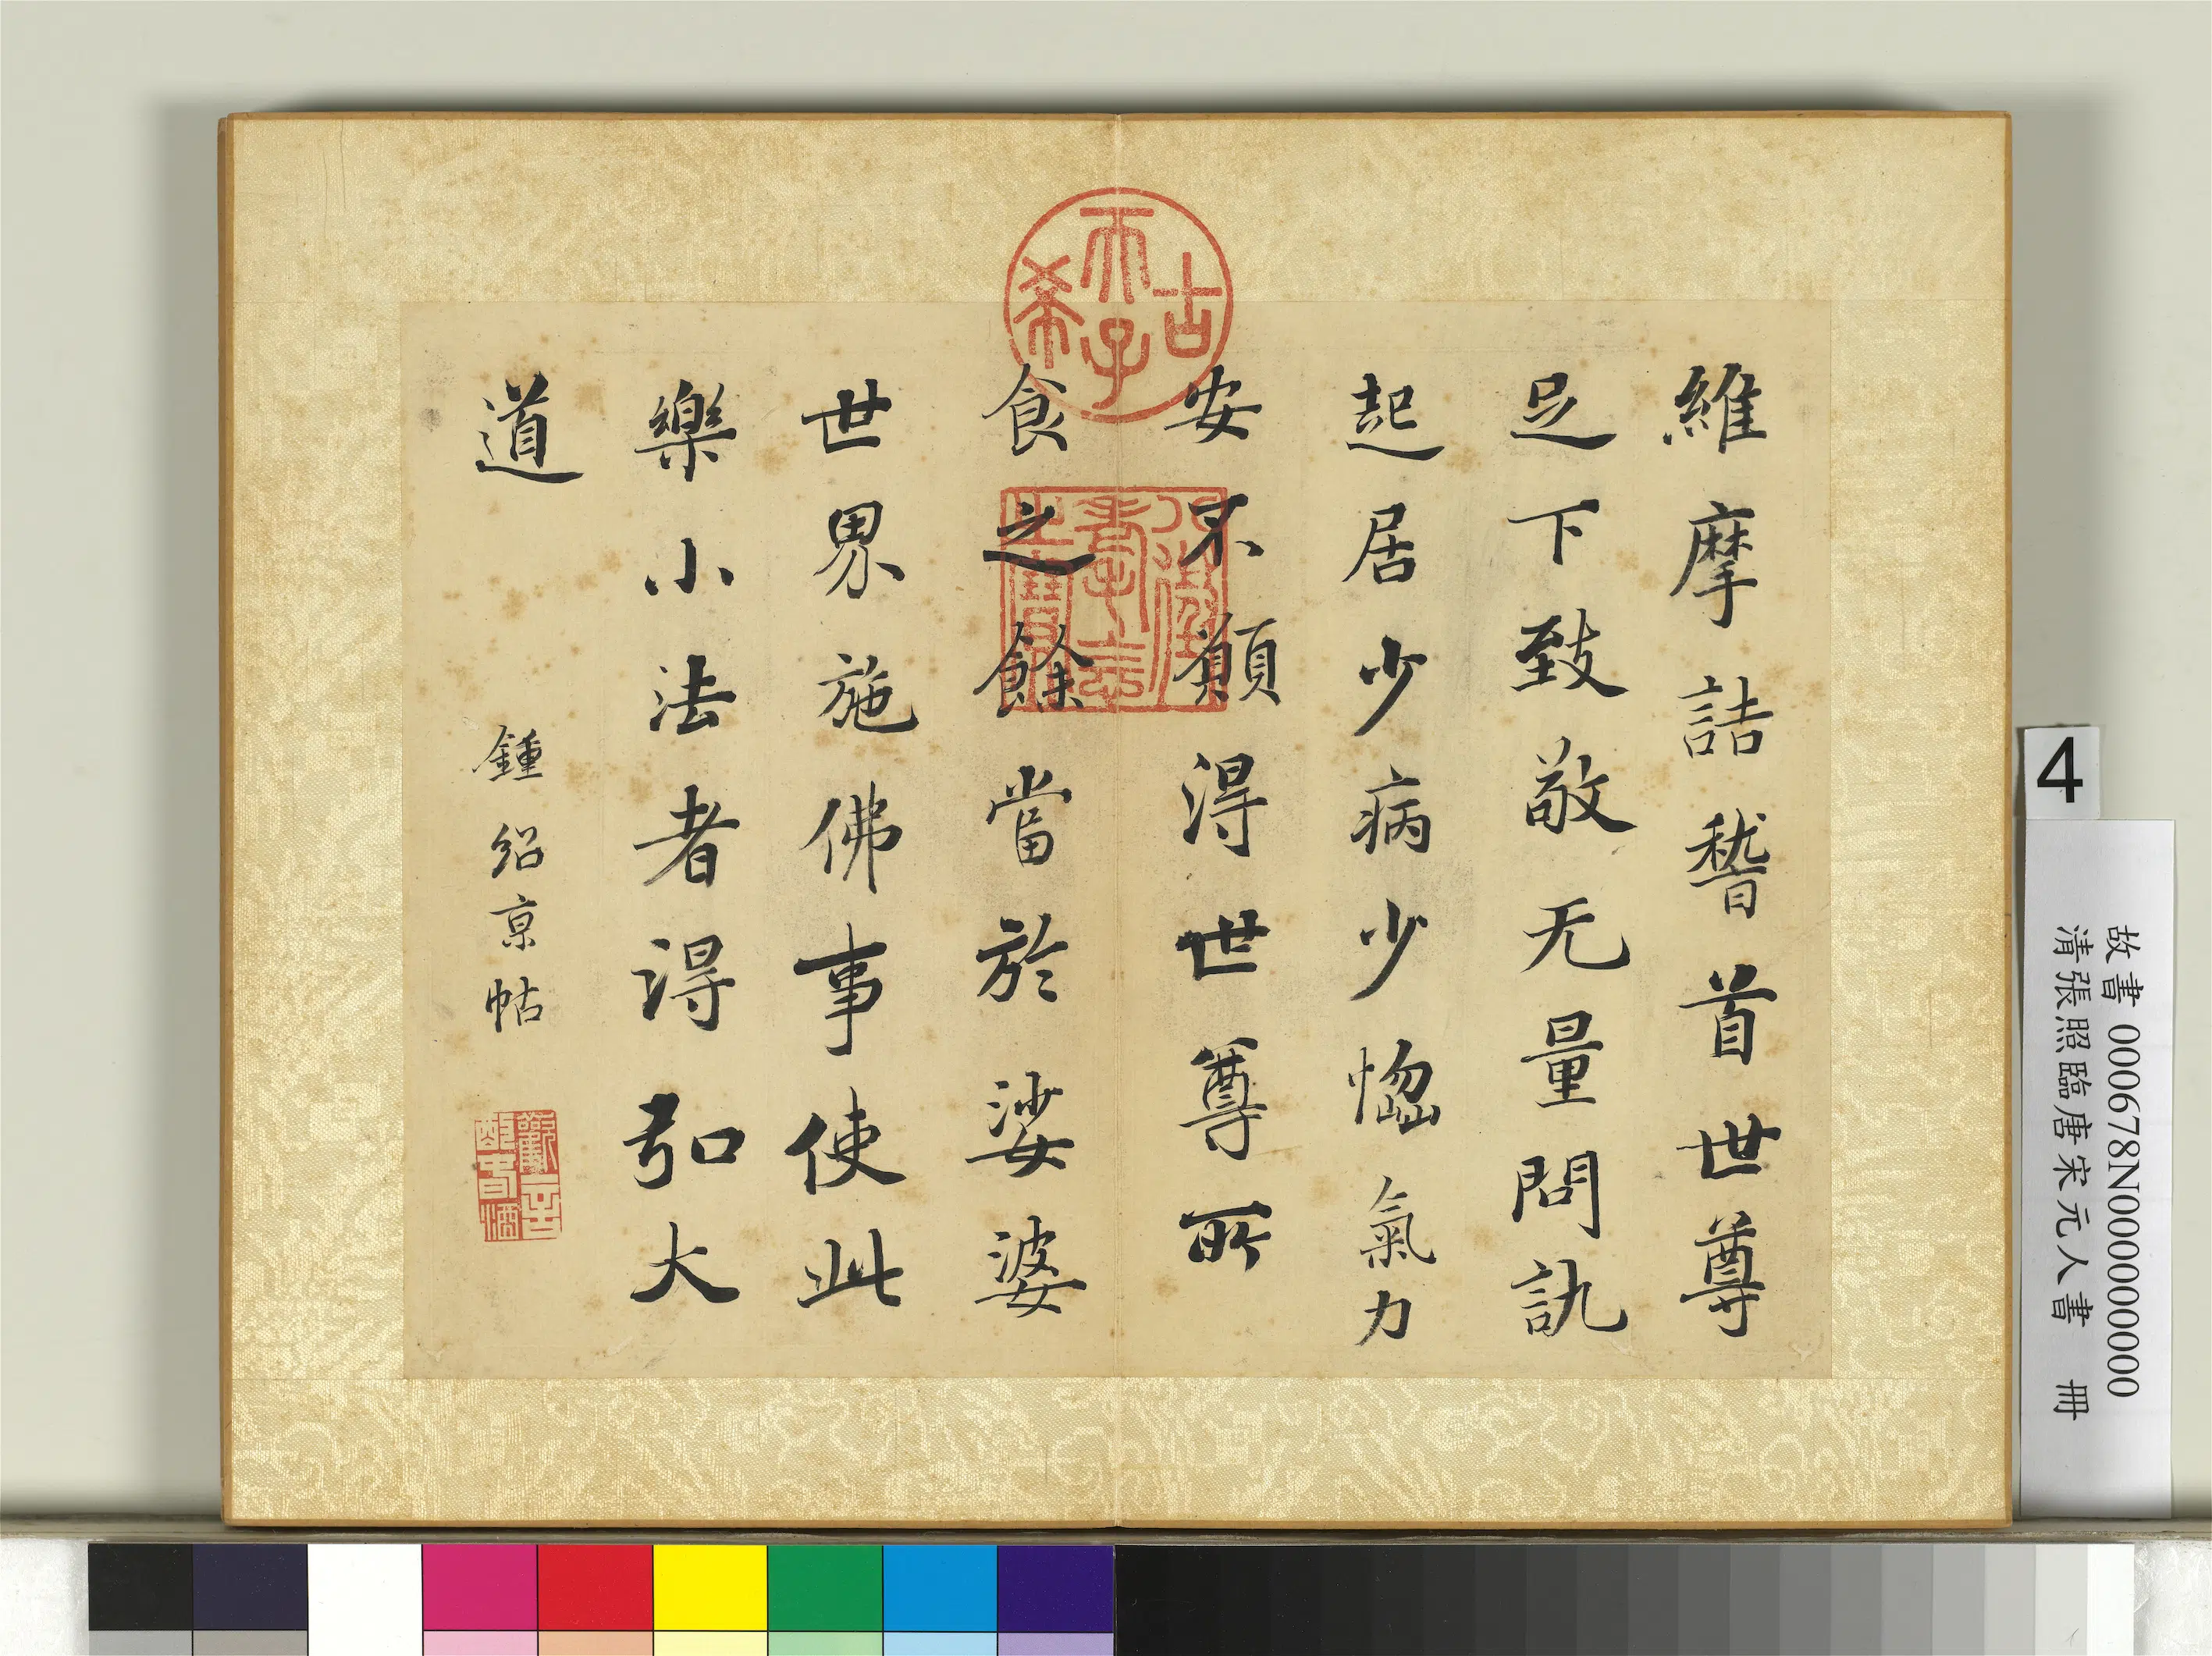 維摩詰稽首世尊
足下致敬无量問訊
起居少病少惱氣力
安不願得世尊所
食之餘當於娑婆
世界施佛事使此
樂小法者得弘大
道
鍾紹京帖
古希天子
八徵耄念之寶
4
故書 000678N000000000
清張照臨唐宋元人書 冊